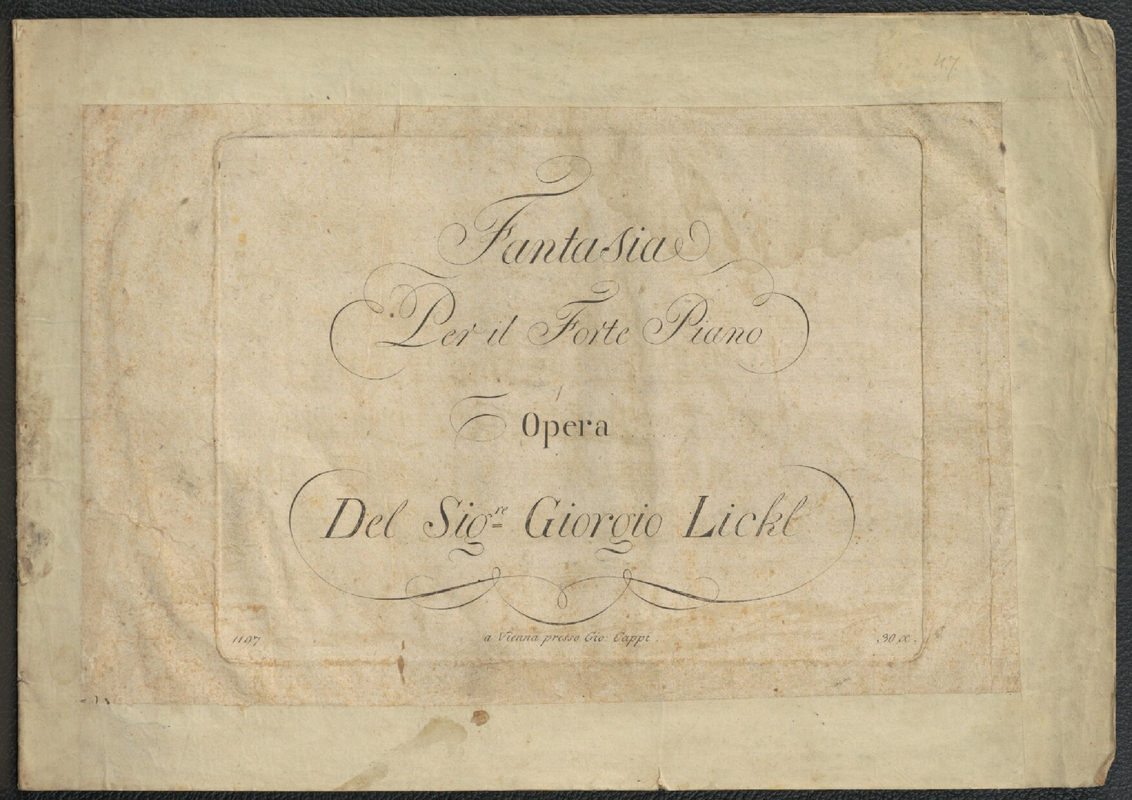 47
Fantasia
Per il Forte Piano
Opera
Del Sig.re Giorgio Lickl
1107 a Vienna presso Gio: Cappi. 30 x.